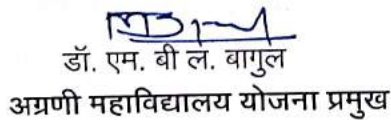 डॉ. एम. बी ले. बागुल
अग्रणी महाविद्यालय योजना प्रमुख